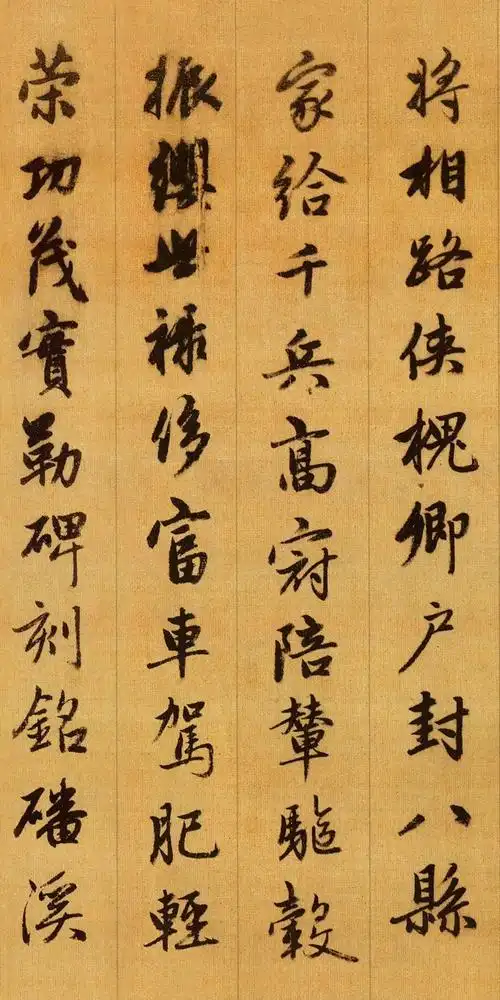 将相路侠槐卿户封八縣
家给千兵高冠陪輦驅轂
振纓世禄侈富車駕肥輕
茂實勒碑刻銘磻溪